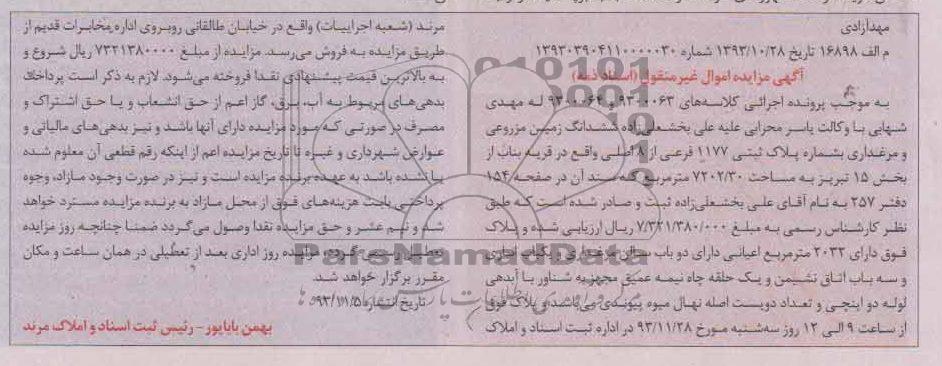 مهدازادی
م الف ۱۶۸۹۸ تاریخ ۱۳۹۳/۱۰/۲۸ شماره ۱۳۹۳۰۳۹۰۴۱۱۰۰۰۰۰۳۰
آگهی مزایده اموال غیرمنقول (اسناد ذمه)
به موجب پرونده اجرائی کلاسه‌های ۹۳۰۰۰۶۳ و ۹۳۰۰۰۶۴ له مهدی
شنهایی با وکالت یاسر محرابی علیه علی بخشعلی‌زاده ششدانگ زمین مزروعی
و مرغداری بشماره پلاک ثبتی ۱۱۷۷ فرعی از ۸ اصلی واقع در قریه بناب از
بخش ۱۵ تبریز به مساحت ۷۲۰۲/۳۰ مترمربع که سند آن در صفحه ۱۵۴
دفتر ۲۵۷ به نام آقای علی بخشعلی‌زاده ثبت و صادر شده است که طبق
نظر کارشناس رسمی به مبلغ ۷/۳۲۱/۳۸۰/۰۰۰ ریال ارزیابی شده و پلاک
فوق دارای ۲۰۳۲ مترمربع اعیانی دارای دو باب سالن مرغداری و یکباب انباری
و سه باب اتاق نشیمن و یک حلقه چاه نیمه عمیق مجهز به شناور با آبدهی
لوله دو اینچی و تعداد دویست اصله نهال میوه پیوندی می‌باشد و پلاک فوق
از ساعت ۹ الی ۱۲ روز سه‌شنبه مورخ ۹۳/۱۱/۲۸ در اداره ثبت اسناد و املاک
مرند (شعبه اجراییات) واقع در خیابان طالقانی روبروی اداره مخابرات قدیم از
طریق مزایده به فروش می‌رسد. مزایده از مبلغ ۷۳۲۱۳۸۰۰۰۰ ریال شروع و
به بالاترین قیمت پیشنهادی نقدا فروخته می‌شود. لازم به ذکر است پرداخت
بدهی‌های مربوط به آب، برق، گاز اعم از حق انشعاب و یا حق اشتراک و
مصرف در صورتی که مورد مزایده دارای آنها باشد و نیز بدهی‌های مالیاتی و
عوارض شهرداری و غیره تا تاریخ مزایده اعم از اینکه رقم قطعی آن معلوم شده
یا نشده باشد به عهده برنده مزایده است و نیز در صورت وجود مازاد، وجوه
پرداختی بابت هزینه‌های فوق از محل مازاد به برنده مزایده مسترد خواهد
شد و نیم عشر و حق مزایده نقدا وصول می‌گردد ضمنا چنانچه روز مزایده
تعطیل رسمی گردد مزایده روز اداری بعد از تعطیلی در همان ساعت و مکان
مقرر برگزار خواهد شد.
تاریخ انتشار: ۹۳/۱۱/۵
بهمن باباپور - رئیس ثبت اسناد و املاک مرند
ParsNamadData